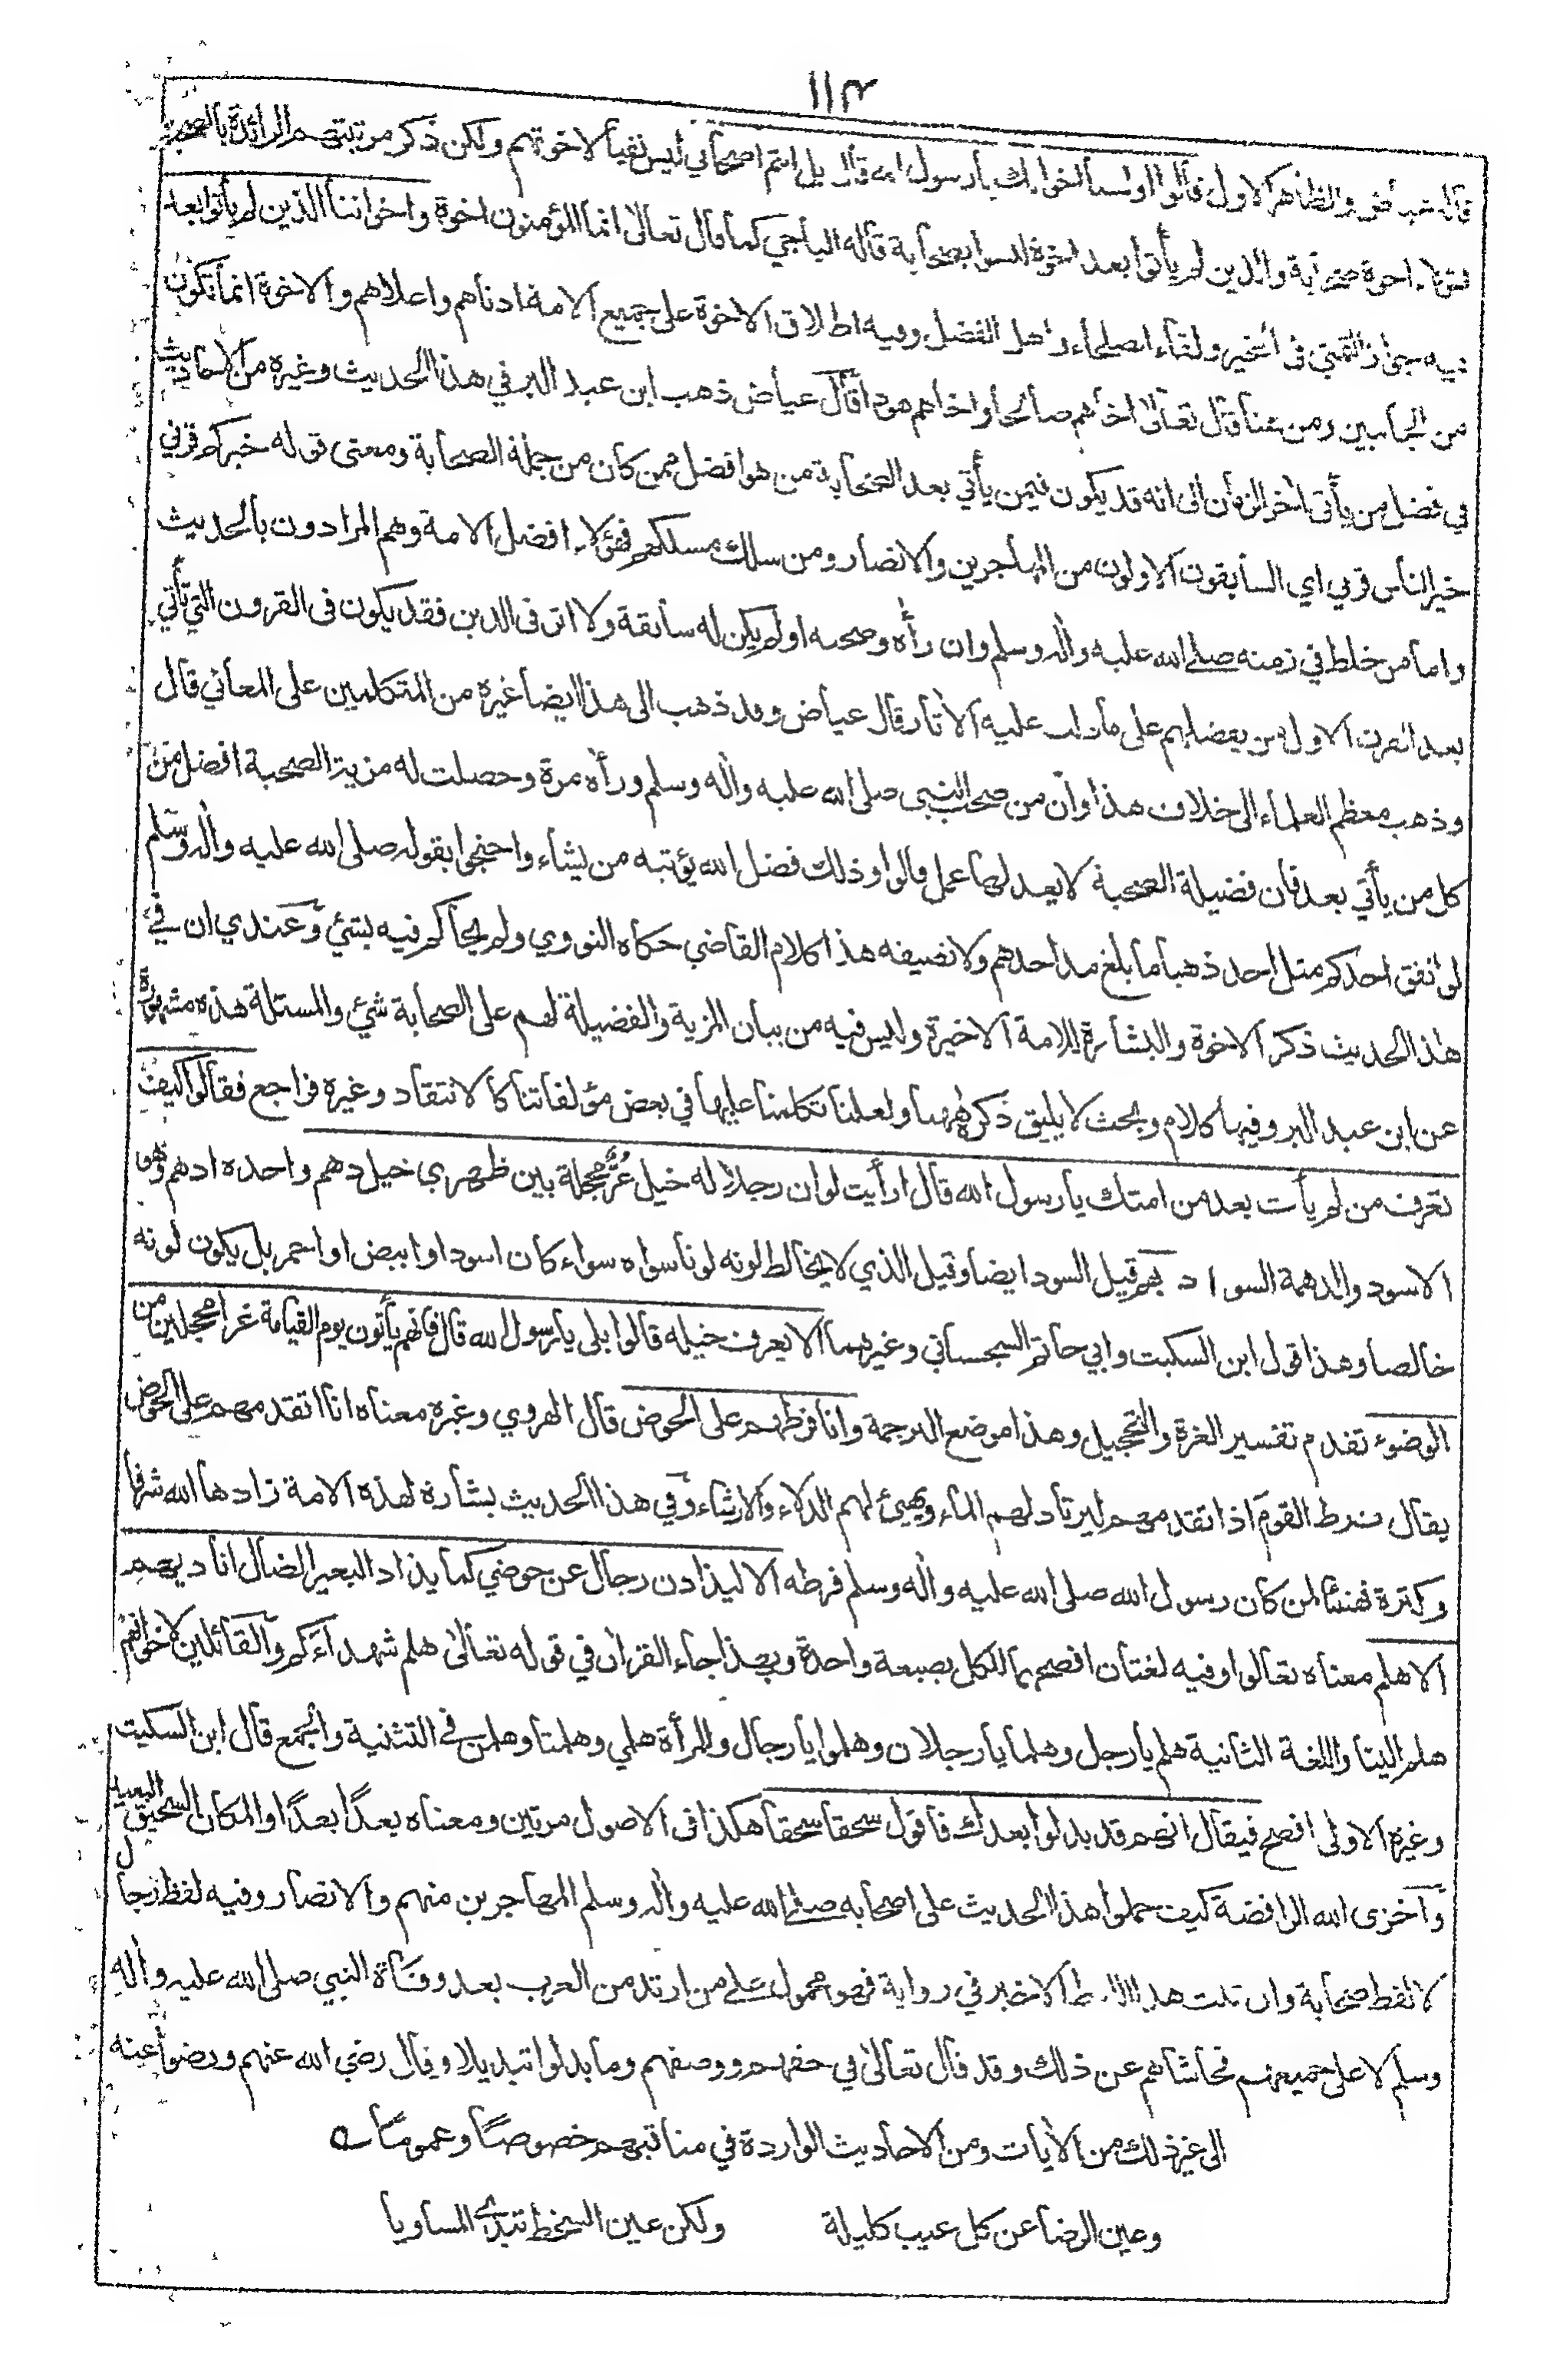 ١١٣
قاله عياض والظاهر الاول قالوا اولسنا اخوانك يا رسول الله قال بل انتم اصحابي ليس نفيا لاخوتهم ولكن ذكر مرتبتهم الزائدة بالصحبة
فهؤلاء اخوة صحابة والذين لم يأتوا بعد اخوة ليسوا بصحابة قاله الباجي كما قال تعالى انما المؤمنون اخوة واخواننا الذين لم يأتوا بعد
فيه جواز التمني في الخير ولقاء الصلحاء واهل الفضل وفيه اطلاق الاخوة على جميع الامة ادناهم واعلاهم والاخوة انما تكون
من الجانبين ومن هنا قال تعالى اخاهم صالحا واخاهم هودا قال عياض ذهب ابن عبد البر في هذا الحديث وغيره من الاحاديث
في فضل من يأتي اخر الزمان الى انه قد يكون فيمن يأتي بعد الصحابة من هو افضل ممن كان من جملة الصحابة ومعنى قوله خيركم قرني
خير الناس قرني اي السابقون الاولون من المهاجرين والانصار ومن سلك مسلكهم فهؤلاء افضل الامة وهم المرادون بالحديث
واما من خلط في زمنه صلى الله عليه واله وسلم وان رأه وصحبه اولم يكن له سابقة ولا اثر في الدين فقد يكون في القرون التي تأتي
بعد القرن الاول من يفضلهم على ما دلت عليه الأثار قال عياض وقد ذهب الى هذا ايضا غيره من المتكلمين على المعاني قال
وذهب معظم العلماء الى خلاف هذا وان من صحب النبي صلى الله عليه واله وسلم ورأه مرة وحصلت له مزية الصحبة افضل من
كل من يأتي بعد فان فضيلة الصحبة لا يعدلها عمل قالوا وذلك فضل الله يؤتيه من يشاء واحتجوا بقوله صلى الله عليه واله وسلم
لو انفق احدكم مثل احد ذهبا ما بلغ مد احدهم ولا نصيفه هذا كلام القاضي حكاه النووي ولم يحاكم فيه بشئ وعندي ان في
هذا الحديث ذكر الاخوة والبشارة للامة الاخيرة وليس فيه من بيان المزية والفضيلة لهم على الصحابة شئ والمسئلة هذه مشهورة
عن ابن عبد البر وفيها كلام وبحث لا يليق ذكره ههنا ولعلنا تكلمنا عليها في بعض مؤلفاتنا كالانتقاد وغيره فراجع فقالوا كيف
تعرف من لم يأت بعد من امتك يا رسول الله قال ارأيت لو ان رجلا له خيل غر محجلة بين ظهري خيل دهم واحده ادهم وهو
الاسود والدهمة السواد بهم قيل السود ايضا وقيل الذي لا يخالط لونه لونا سواه سواء كان اسود او ابيض او احمر بل يكون لونه
خالصا وهذا قول ابن السكيت وابي حاتم السجستاني وغيرهما الا يعرف خيله قالوا بلى يا رسول الله قال فانهم يأتون يوم القيامة غرا محجلين من
الوضوء تقدم تفسير الغرة والتحجيل وهذا موضع الترجمة وانا فرطهم على الحوض قال الهروي وغيره معناه انا اتقدمهم على الحوض
يقال فرط القوم اذا تقدمهم ليرتاد لهم الماء ويهيئ لهم الدلاء والارشاء وفي هذا الحديث بشارة لهذه الامة زادها الله شرفا
وكثرة فهنيئا لمن كان رسول الله صلى الله عليه واله وسلم فرطه الا ليذادن رجال عن حوضي كما يذاد البعير الضال اناديهم
الا هلم معناه تعالوا وفيه لغتان افصحهما للكل بصيغة واحدة وبهذا جاء القرأن في قوله تعالى هلم شهداءكم والقائلين لاخوانهم
هلم الينا واللغة الثانية هلم يا رجل وهلما يا رجلان وهلموا يا رجال والمرأة هلمي وهلمتا وهلمن في التثنية والجمع قال ابن السكيت
وغيره الاولى افصح فيقال انهم قد بدلوا بعدك فاقول سحقا سحقا هكذا في الاصول مرتين ومعناه بعدا بعدا والمكان السحيق البعيد
واخزى الله الرافضة كيف حملوا هذا الحديث على اصحابه صلى الله عليه واله وسلم المهاجرين منهم والانصار وفيه لفظ رجال
لا لفظ صحابة وان ثبت هذا اللفظ الاخير في رواية فهو محمول على من ارتد من العرب بعد وفاة النبي صلى الله عليه واله
وسلم لا على جميعهم فحاشاهم عن ذلك وقد قال تعالى في حقهم ووصفهم وما بدلوا تبديلا وقال رضي الله عنهم ورضوا عنه
الى غير ذلك من الأيات ومن الاحاديث الواردة في مناقبهم خصوصا وعموما
وعين الرضا عن كل عيب كليلة ولكن عين السخط تبدي المساويا